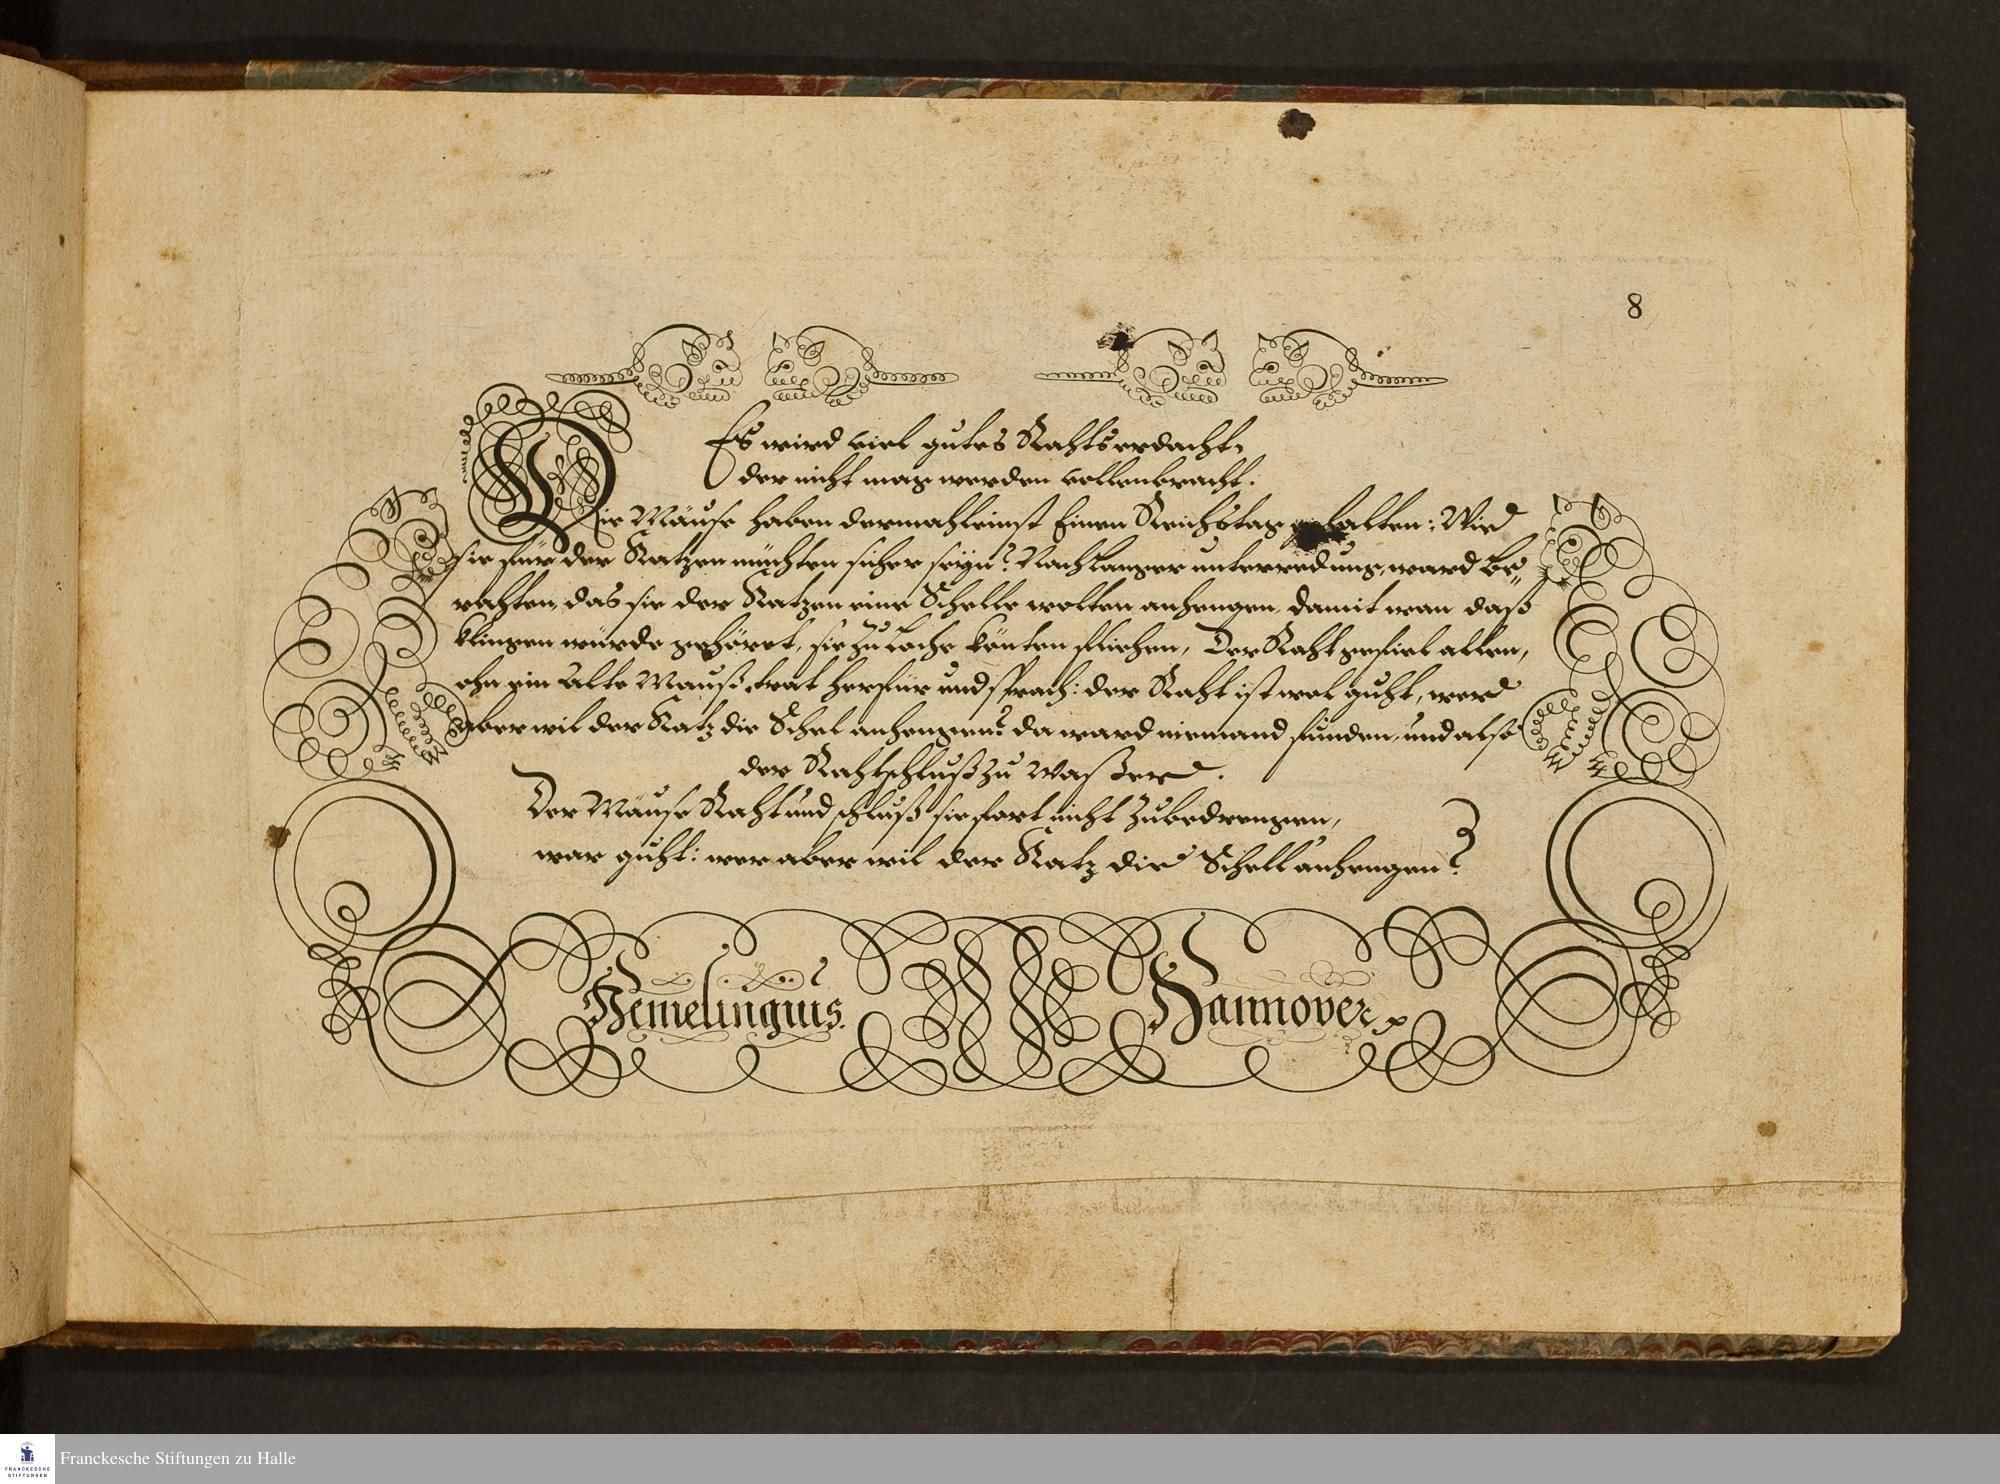 8
Es wird viel gutes Rahts erdacht,
der nicht mag werden vollenbracht.
Die Mäuse haben dermahleinst Einen Reichstag gehalten: Wie
sie für der Katzen müchten sicher seyn? Nach langer unterredung, ward be„
rahten, das sie der Katzen eine Schelle wolten anhengen, damit wan daß
klingen würde gehöret, sie zu Loche könten fliehen, Der Raht gefiel allen,
ohn ein Alte Mauß, trat herfür und sprach: der Raht ist wol guht, wer
aber wil der Katz die Schel anhengen? da ward niemand funden, und alse
der Rahtschluß zu Waßer.
Der Mäuse Raht und schluß sie fort nicht zubedrengen,
war guht: wer aber wil der Katz die Schell anhengen?
Hemelingius. Hannover
Franckesche Stiftungen zu Halle
FRANCKESCHE
STIFTUNGEN